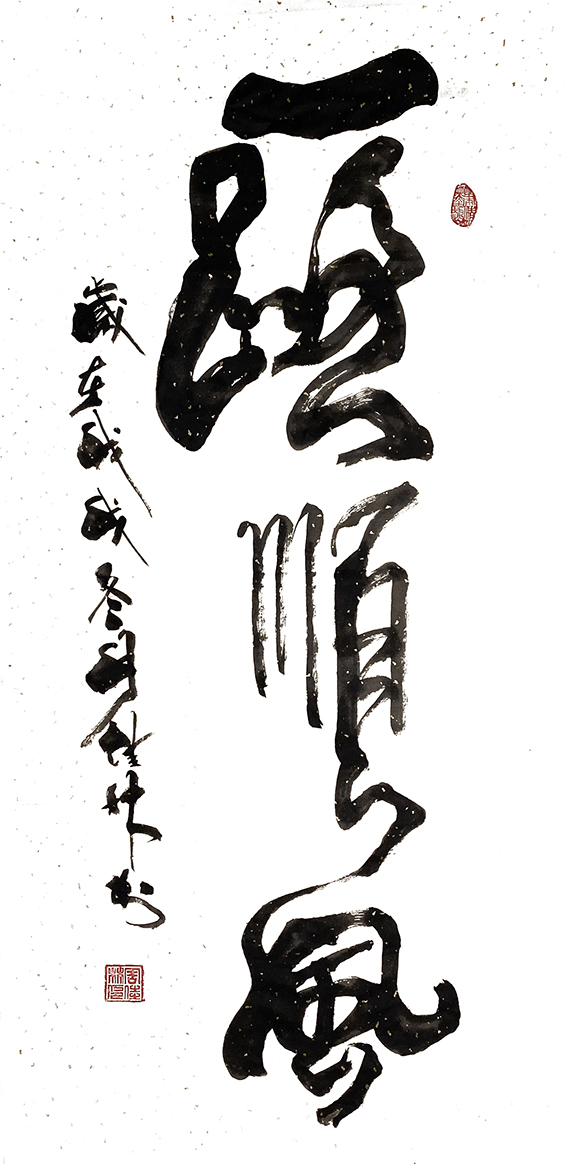 一路順風
歲在戊戌冬月